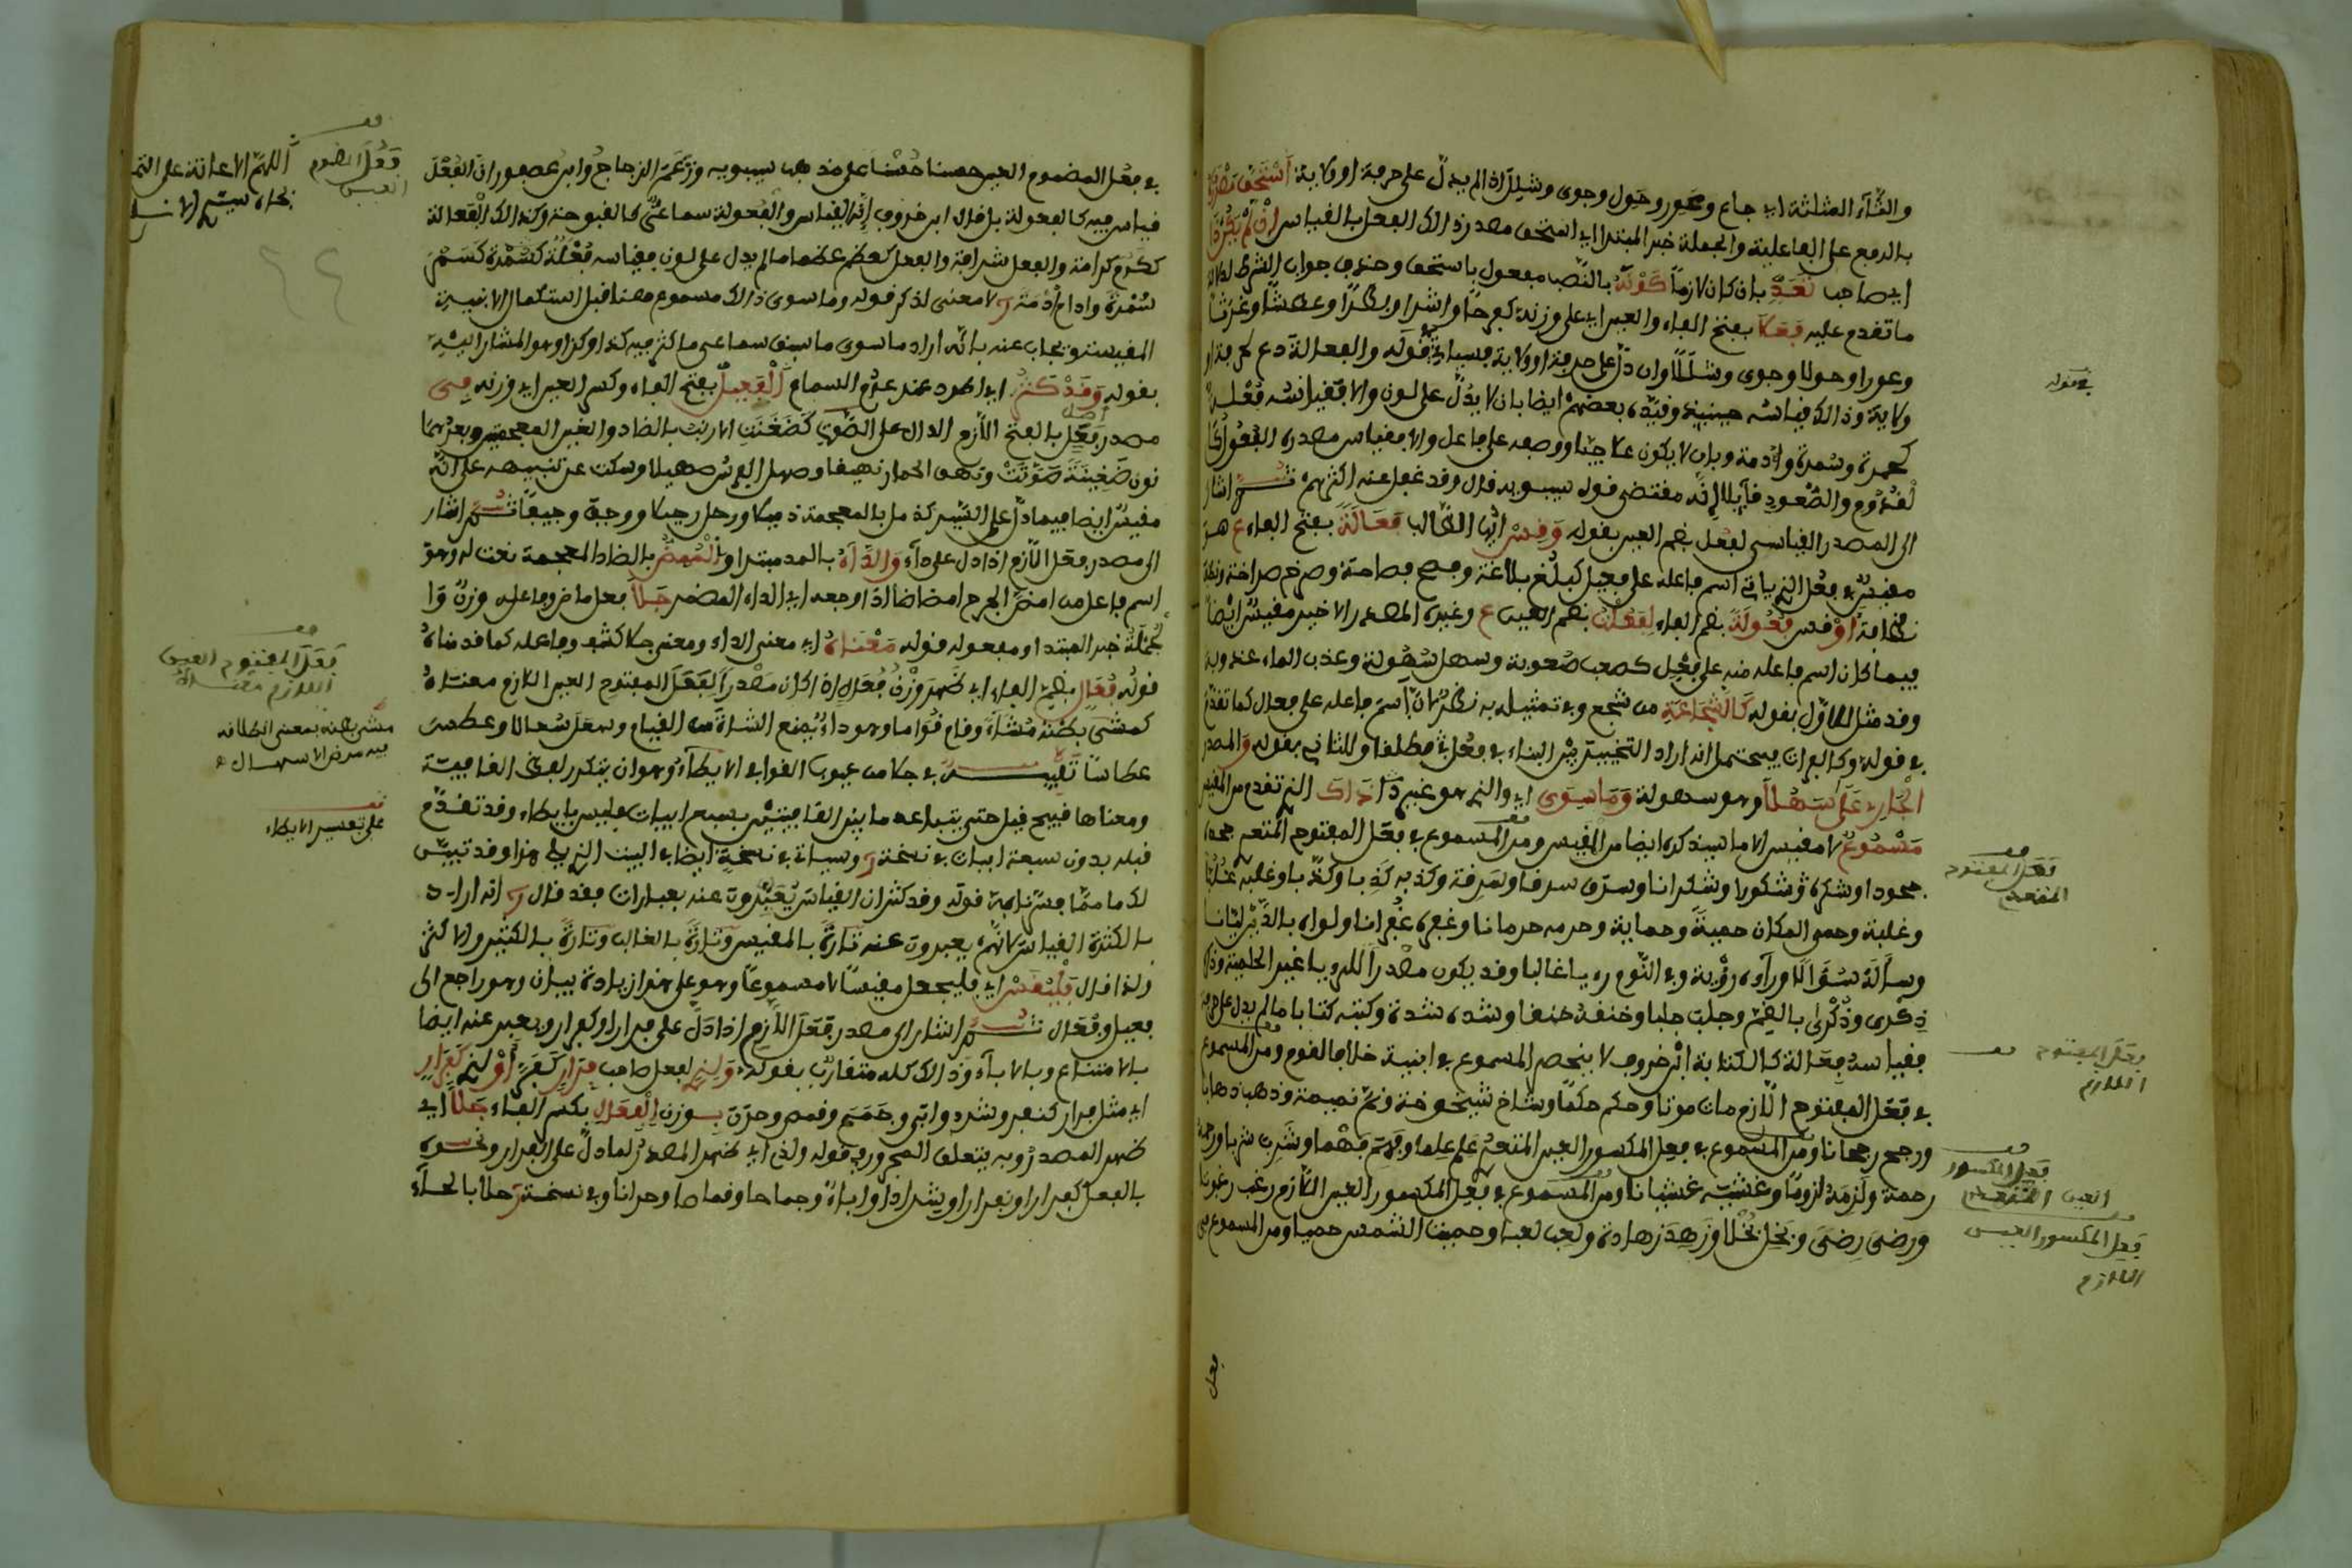 والثاء المثلثة اي جاع وعور وحول وجوى وشلل اذا لم يدل على حرفة او ولاية استحق مصدره
بالرفع على الفاعلية والجملة خبر المبتدا اي استحق مصدر ذالك الفعل بالقياس ان لم يكن ذا
اي صاحب تعد بان كان لازما كونه بالنصب مفعول باستحق وحذف جواب الشرط لدلالة
ما تقدم عليه فعلا بفتح الفاء والعين اي على وزنه كفرحا واشرا وبطرا وعطشا وغرثا
وعورا وحولا وجوى وشللا وان دل على حرفة او ولاية فسياتي قوله والفعالة دع لحرفة او
ولاية وذالك قياسه حينئذ وقيده بعضهم ايضا بان لا يدل على لون والا فقياسه فعلة
كحمرة وسمرة وادمة وبان لا يكون علاجا ووصفه على فاعل والا فقياس مصدره الفعول
لقدوم والصعود قايلا انه مقتضى قول سيبويه قال وقد غفل عنه اكثرهم ثم اشار
الى المصدر القياسي لفعل بضم العين بقوله وقس ايها الطالب فعالة بفتح الفاء ع هو
مقيس في فعل الذي ياتي اسم فاعله على فعيل كبلغ بلاغة وفصح فصاحة وصرح صراحة ونظف
نظافة او قس فعولة بضم الفاء لفعلت بضم العين ع وغيره المصدر الاخير مقيس ايضا
فيما كان اسم فاعله منه على فعل كصعب صعوبة وسهل سهولة وعذب الماء عذوبة
وقد مثل للاول بقوله كالشجاعة من شجع وفي تمثيله به نظر لان اسم فاعله على فعال كما تقدم
في قوله وكالفرات يحتمل انه اراد التخيير بين البناء في فعل مطلقا وللثاني بقوله والمصدر
الجاري على سهلا وهو سهولة وما سوى اي والذي هو غير ذا ذاك الذي تقدم من المقيس
مسموع لا مقيس الا ما سيذكره ايضا من المقيس ومن المسموع في فعل المفتوح المتعدي جحده
جحودا وشكره شكورا وشكرانا وسرق سرقا وسرقة وكذبه كذبا وكذبا وغلبه غلبا
وغلبة وحمى المكان حمية وحماية وحرمه حرمانا وغفره غفرانا ولواه بالدين ليانا
وساله سؤالا وراه رؤية وفي النوم رؤيا غالبا وقد يكون مصدرا للرؤيا غير الحلمية وذكره
ذكرى وذكرى بالضم وجلبه جلبا وخنقه خنقا ونشده نشدة وكتبه كتابا ما لم يدل على حرفة
فقياسه فعالة كالكتابة ابن خروف لا ينحصر المسموع في ابنية خلافا لقوم ومن المسموع
في فعل المفتوح اللازم مات موتا وحكم حكما وشاخ شيخوخة ونم نميمة وذهب ذهابا
ورجح رجحانا ومن المسموع في فعل المكسور العين المتعدي علم علما وفهم فهما وشرب شربا ورحمه
رحمة ولزمه لزوما وغشيه غشيانا ومن المسموع في فعل المكسور العين اللازم رغب رغوبا
ورضي رضى وبخل بخلا وزهد زهادة ولعب لعبا وحميت الشمس حميا ومن المسموع في
فعل
في قوله
فعل المفتوح
المتعدي
فعل المفتوح
اللازم
فعل المكسور
العين المتعدي
فعل المكسور العين
اللازم
في فعل المضموم العين حسنا حسنا على مذهب سيبويه وزعم الزجاج وابن عصفور ان الفعل
قياس فيه كالفعولة بل قال ابن خروف انه القياس والفعولة سماعي كالقبوحة وكذالك الفعالة
ككرم كرامة والفعل شرافة والفعل كعظم عظما ما لم يدل على لون فقياسه فعلة كسمرة كسمر
سمرة وادم ادمة لا معنى لذكر قوله وما سوى ذالك مسموع هنا قبل استكمال الابنية
المقيسة ويجاب عنه بانه اراد ما سوى ما سبق سماعي ما كثر فيه كذا وكذا وهو المشار اليه
بقوله وقد كثر اي اطرد عند عدم السماع الفعيل بفتح الفاء وكسر العين اي وزنه في
مصدر فعل بالفتح اللازم الدال على الصوت كضغت الارنب بالضاد والغين المعجمتين وبعدهما
نون ضغينة صوتت ونهق الحمار نهيقا وصهل الفرس صهيلا وسكت عن تنبيهه على انه
مقيس ايضا فيما دل على السير كذمل بالمعجمة ذميلا ورحل رحيلا ووجف وجيفا ثم اشار
الى مصدر فعل اللازم اذا دل على داء والداء بالمد مبتدا والممض بالضاد المعجمة نعت له وهو
اسم فاعل من امض الجرح امضاضا اذا اوجعه اي الداء المضر جلا فعل ماض وفاعله وزن وا
لجملة خبر المبتدا ومفعوله قوله معناه اي معنى الداء ومعنى جلا كشف وفاعله كما قدمناه
قوله فعال بضم الفاء اي ظهر وزن فعال اذا كان مصدرا لفعل المفتوح العين اللازم معناه
كمشى بطنه مشاء وقام قواما وهو داء يمنع الشاة من القيام وسعل سعالا وعطس
عطاسا تنبيه في جلا من عيوب القوافي الايطاء وهو ان يتكرر لفظ القافية
ومعناها قبيح قيل حتى يتباعد ما بين القافيتين بسبع ابيات فليس بايطاء وقد تقدم
قبله بدون سبعة ابيات في نسخة وسياتي في نسخة ايضا في البيت الذي يلي هذا وقد تبين
لك ما مما فسرنا به قوله وقد كثر ان القياس يعبرون عنه بعبارات فقد قال انه اراد
بالكثرة القياس لانهم يعبرون عنه تارة بالمقيس وتارة بالغالب وتارة بالكثير والاكثر
ولذا قال فليقس اي فليجعل مقيسا لا مسموعا وهو على هذا زيادة بيان وهو راجع الى
فعيل وفعال ثم اشار الى مصدر فعل اللازم اذا دل على فرار او كفرار ويعبر عنه ايضا
بالامتناع وبالاباء وذالك كله متقارب بقوله ولذي لفعل صاحب فرار كفر او لذي كفرار
اي مثل فرار كنفر وشرد وابى وجمح وقمص وحرن بوزن الفعال بكسر الفاء جلا اي
ظهر المصدر وبه يتعلق المجرور في قوله ولذي اي ظهر المصدر لما دل على الفرار ونحوه
بالفعل كفرارا ونفارا وشرادا واباء وجماحا وقماصا وحرانا وفي نسخة حلا بالحاء
فعل المضموم
العين
اللهم الاعانة على التمام
فعل المفتوح العين
اللازم
مشى بطنه بمعنى انطلاقه
فيه مرض الاسهال
على تفسير الايطاء